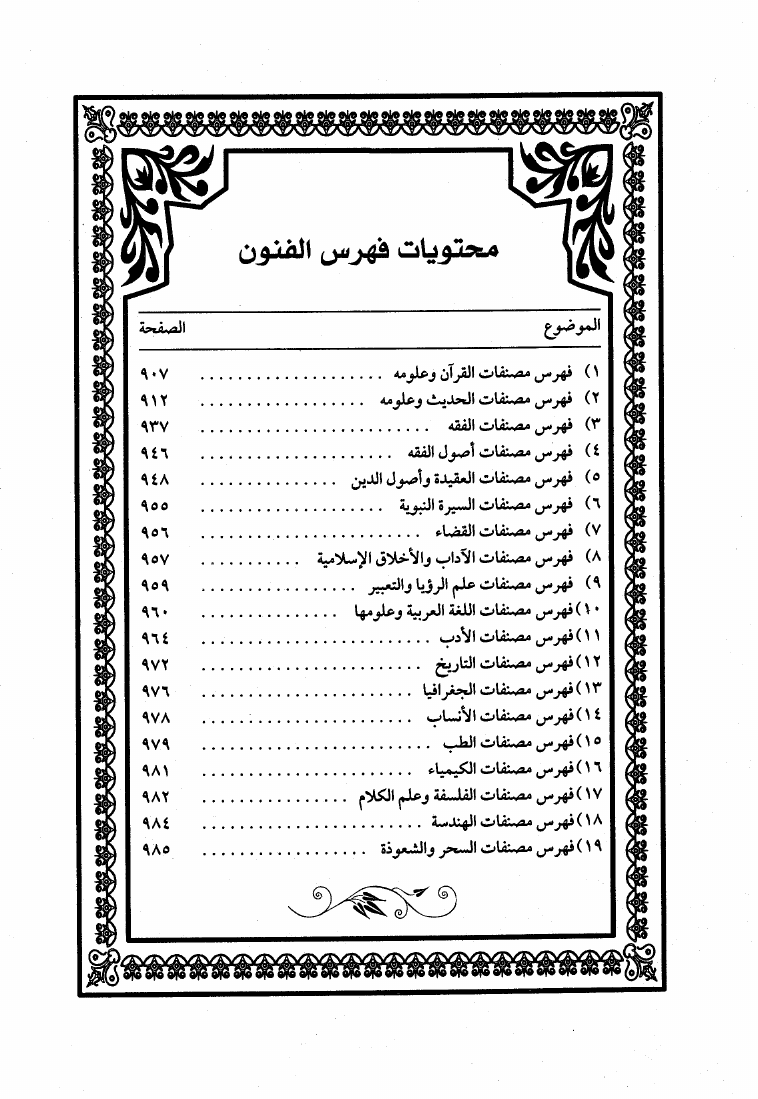 محتويات فهرس الفنون
الموضوع الصفحة
١) فهرس مصنفات القرآن وعلومه .................... ٩٠٧
٢) فهرس مصنفات الحديث وعلومه .................. ٩١٢
٣) فهرس مصنفات الفقه ......................... ٩٣٧
٤) فهرس مصنفات أصول الفقه ..................... ٩٤٦
٥) فهرس مصنفات العقيدة وأصول الدين ............... ٩٤٨
٦) فهرس مصنفات السيرة النبوية .................... ٩٥٥
٧) فهرس مصنفات القضاء ........................ ٩٥٦
٨) فهرس مصنفات الآداب والأخلاق الإسلامية ........... ٩٥٧
٩) فهرس مصنفات علم الرؤيا والتعبير ................. ٩٥٩
١٠) فهرس مصنفات اللغة العربية وعلومها ............... ٩٦٠
١١) فهرس مصنفات الأدب ......................... ٩٦٤
١٢) فهرس مصنفات التاريخ ........................ ٩٧٢
١٣) فهرس مصنفات الجغرافيا ....................... ٩٧٦
١٤) فهرس مصنفات الأنساب ....................... ٩٧٨
١٥) فهرس مصنفات الطب ......................... ٩٧٩
١٦) فهرس مصنفات الكيمياء ....................... ٩٨١
١٧) فهرس مصنفات الفلسفة وعلم الكلام ................ ٩٨٢
١٨) فهرس مصنفات الهندسة ........................ ٩٨٤
١٩) فهرس مصنفات السحر والشعوذة .................. ٩٨٥